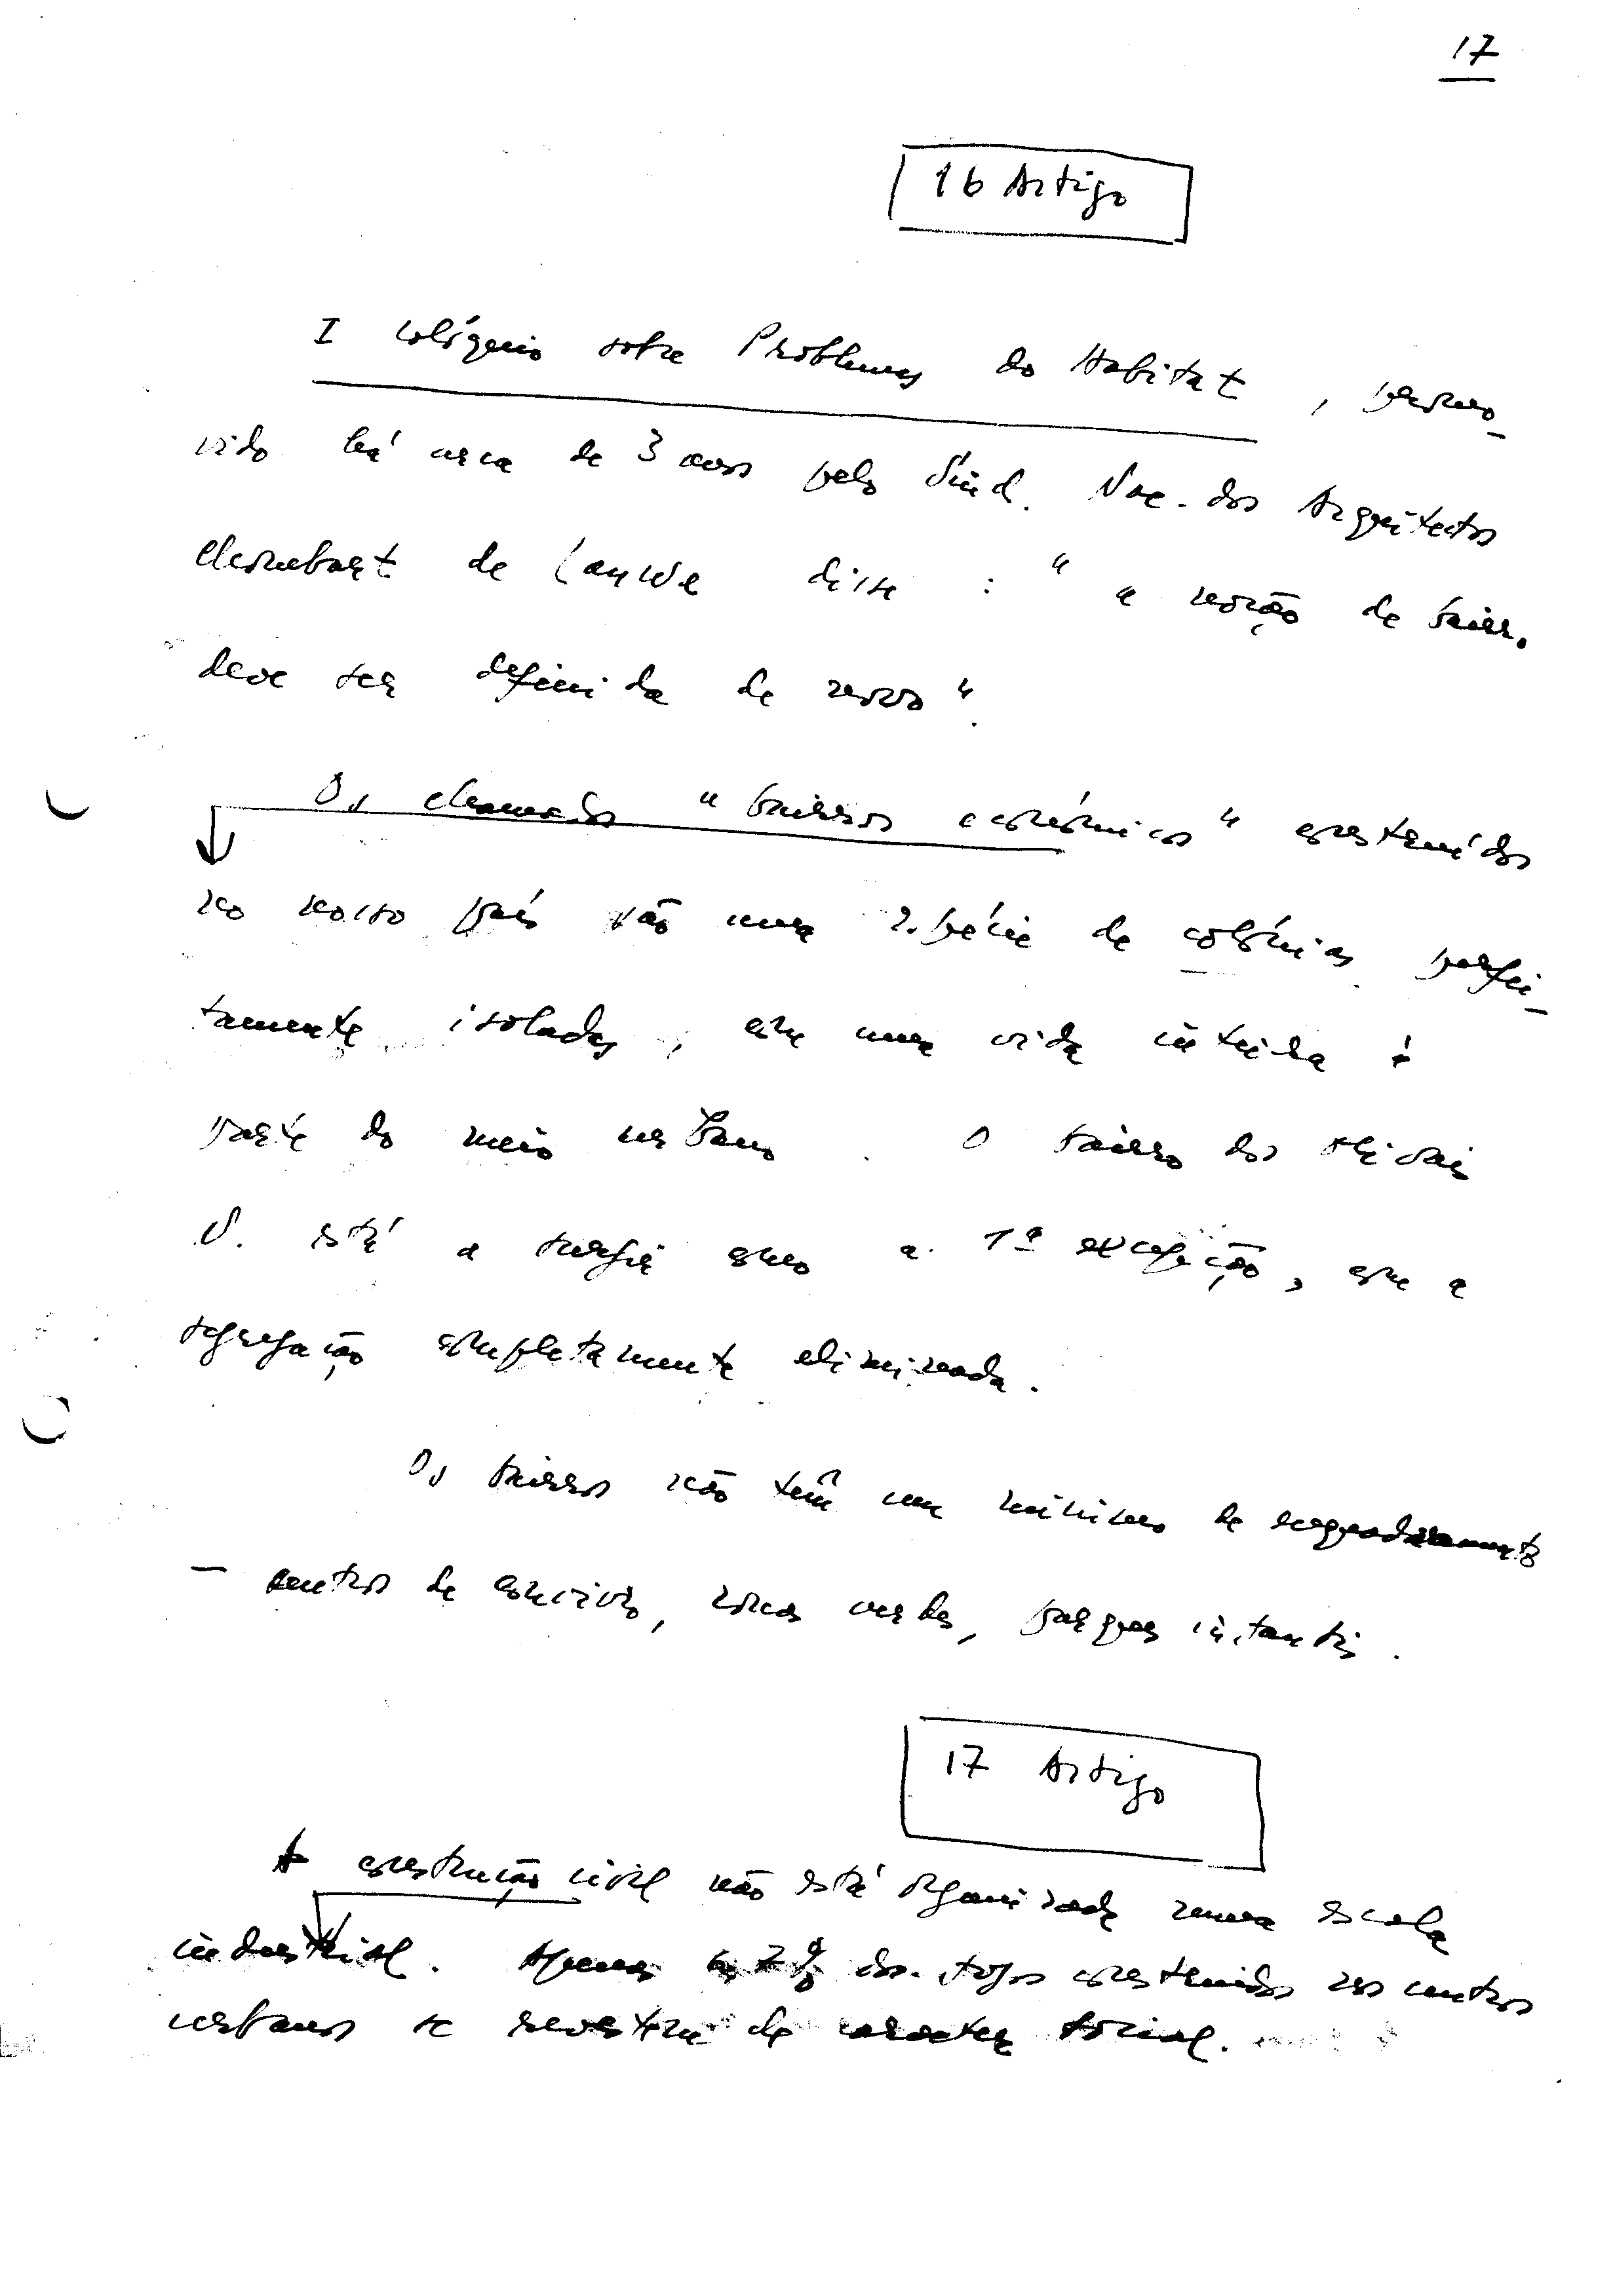 17
16 Artigo
I Colóquio sobre Problemas do Habitat, promo-
vido há cerca de 3 anos pelo Sind. Nac. dos Arquitectos
Chombart de Lauwe disse : " a noção de bairro
deve ser definida de novo".
Os chamados "bairros económicos" construídos
no nosso país são uma espécie de colónias perfei-
tamente isoladas, com uma vida
parte do meio urbano. O bairro dos Olivais
S. está a surgir como a 1ª excepção, com a
segregação completamente eliminada.
Os bairros não têm um mínimo de enquadramento
- centros de convívio, zonas verdes, parques infantis.
17 Artigo
A construção civil não está organizada numa escala
industrial. Apenas 2% dos fogos construídos nos centros
urbanos se revestem de caracter social.